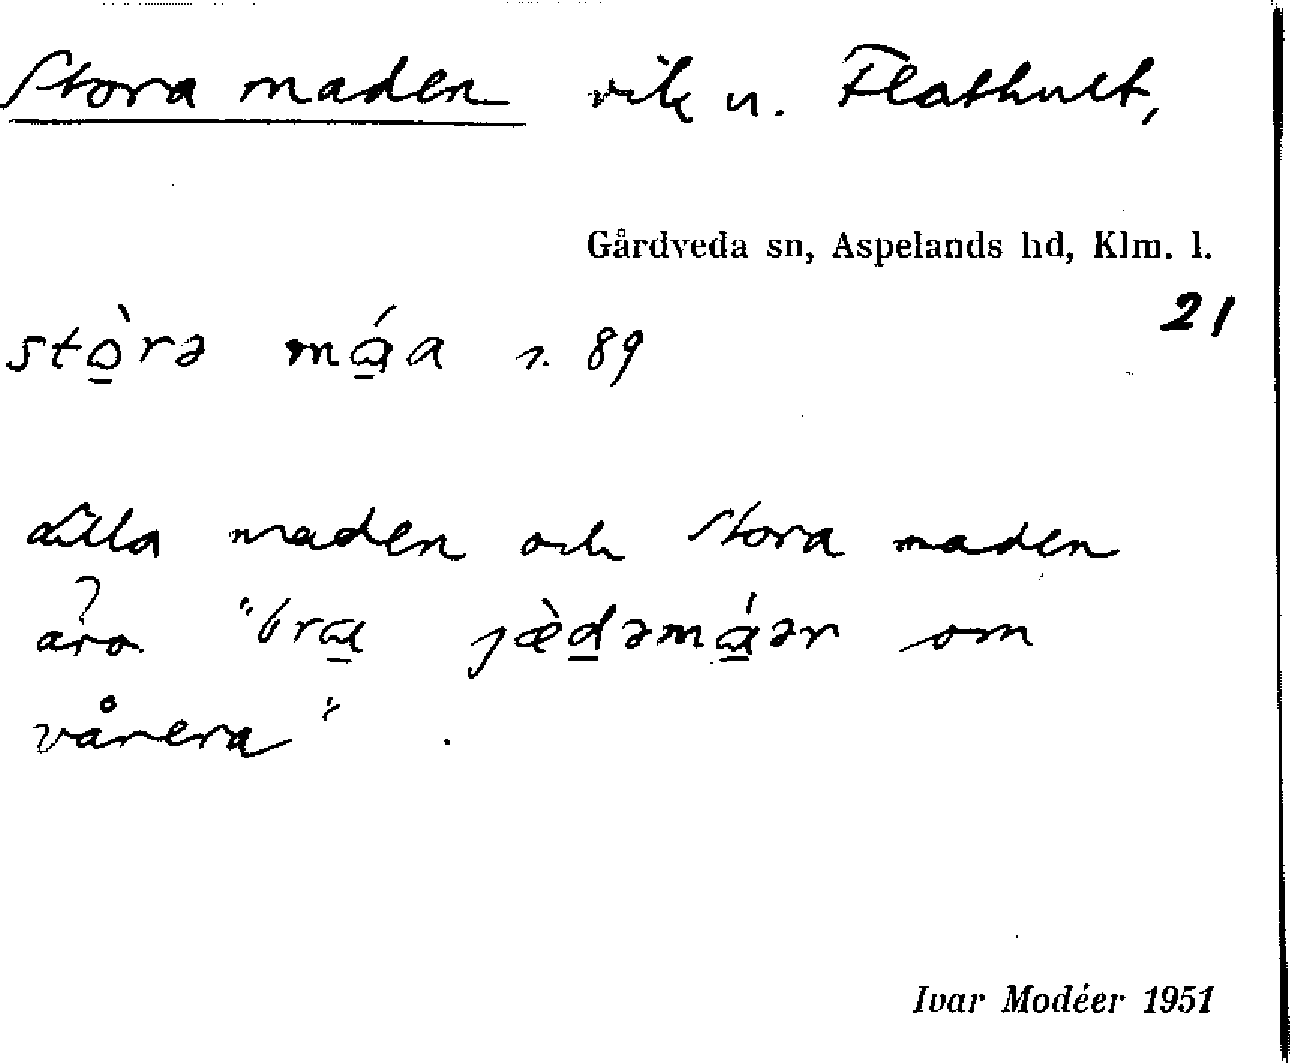 Stora maden vik u. Flathult,
Gårdveda sn, Aspelands hd, Klm. l.
21
stò̲rə mɑ̲́a s. 89
Lilla maden och Stora maden
äro "brɑ̲ jæ̀d̲əmɑ̲́ər om
vårera".
Ivar Modéer 1951